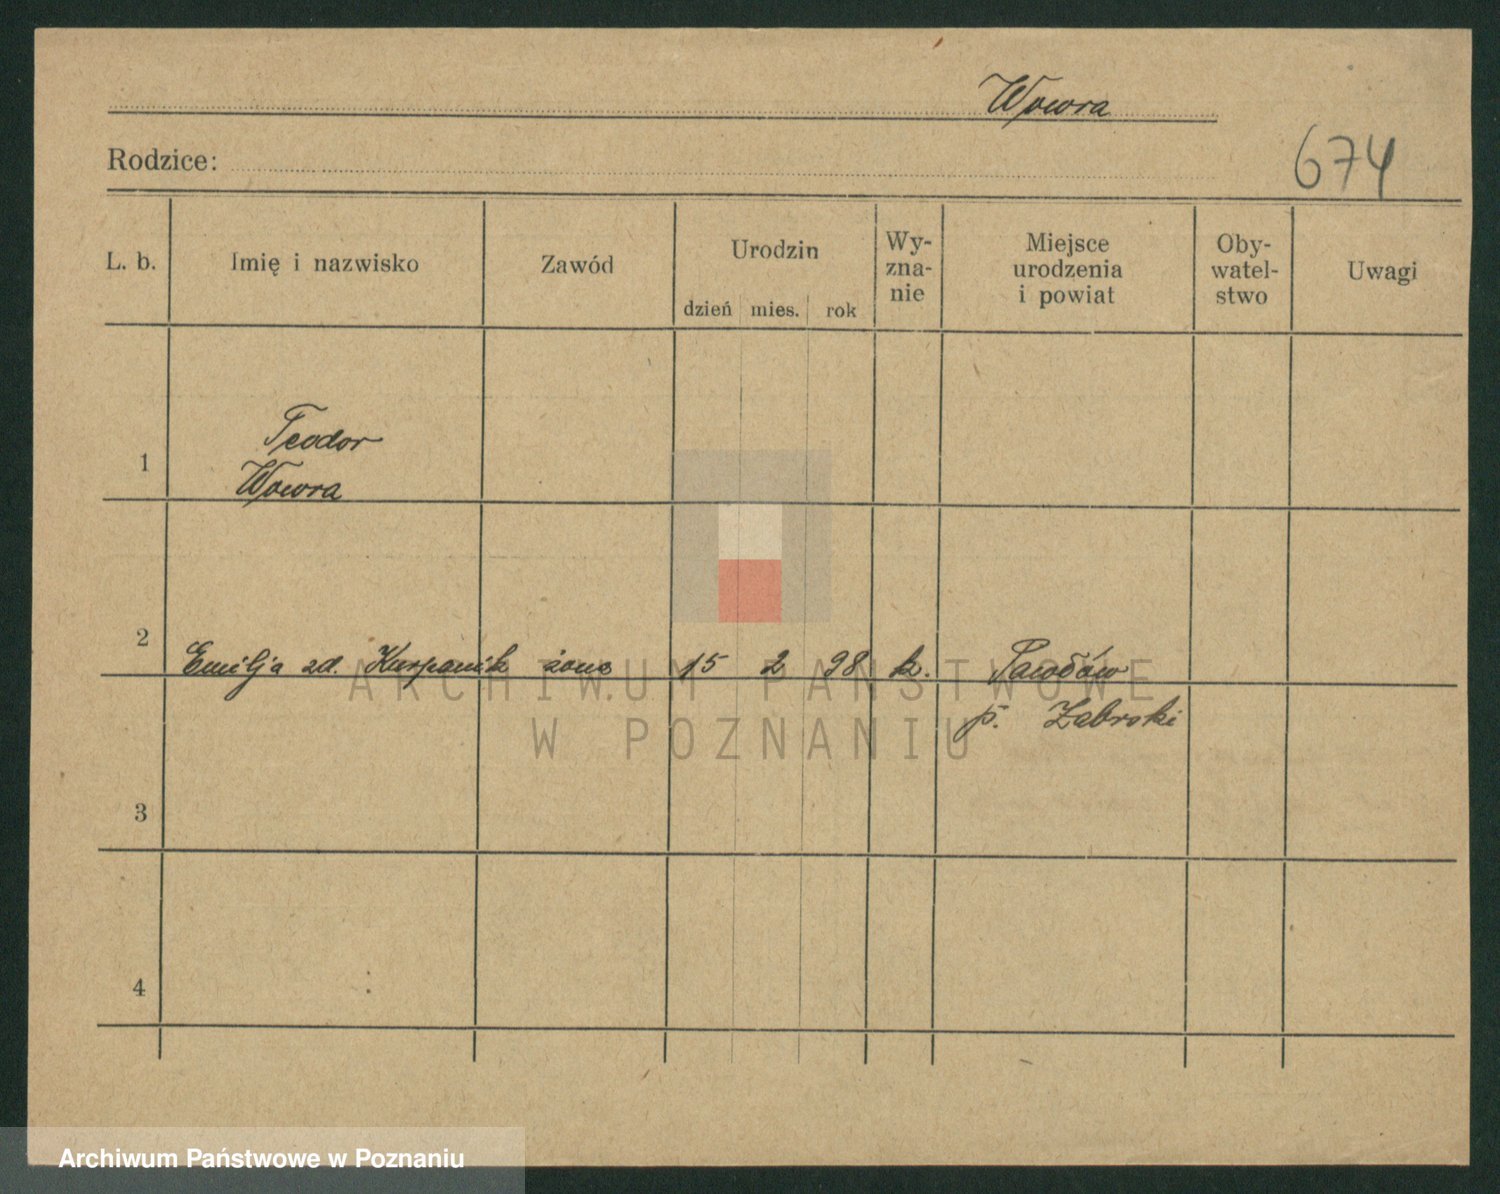 Wowra
Rodzice:
674
L. b.
Imię i nazwisko
Zawód
Urodzin
dzień mies. rok
Wy-
zna-
nie
Miejsce
urodzenia
i powiat
Oby-
watel-
stwo
Uwagi
1
Teodor
Wowra
2 Emilja zd. Kurpanik żona 15 2 98 k. Pawłów
p. Zabrski
3
4
ARCHIWUM PAŃSTWOWE
W POZNANIU
Archiwum Państwowe w Poznaniu